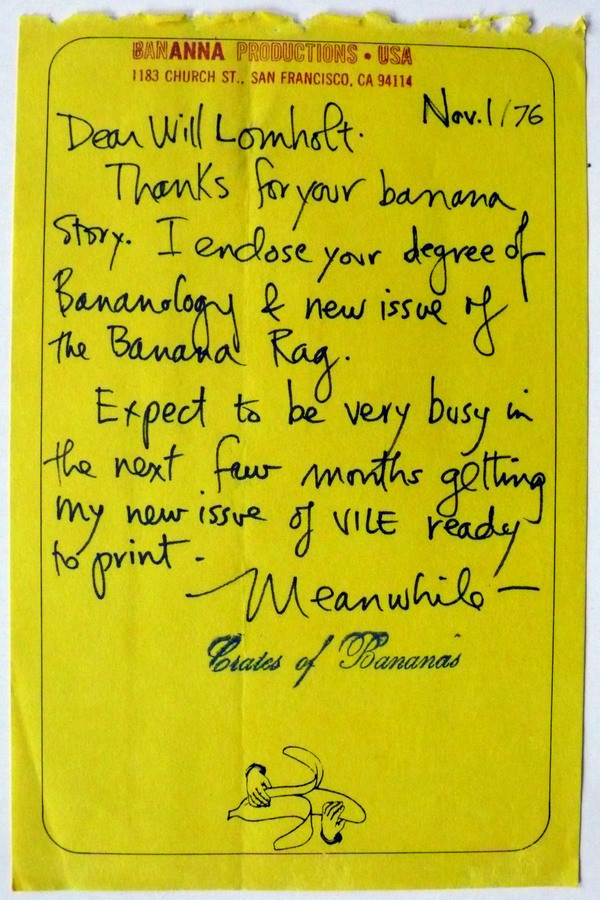 BANANNA PRODUCTIONS • USA
1183 CHURCH ST., SAN FRANCISCO, CA 94114
Nov. 1/76
Dear Will Lomholt.
Thanks for your banana
story. I enclose your degree of
Bananology & new issue of
the Banana Rag.
Expect to be very busy in
the next few months getting
my new issue of VILE ready
to print -
Meanwhile —
Crates of Bananas